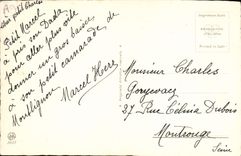 Petit Marcel
a pris son Dada
pour aller plus vite
donner un gros baiser
à son petit camarade de
Montlignon
Marcel Herr
Monsieur Charles
27 Rue Célina Dubois
Montrouge
Seine